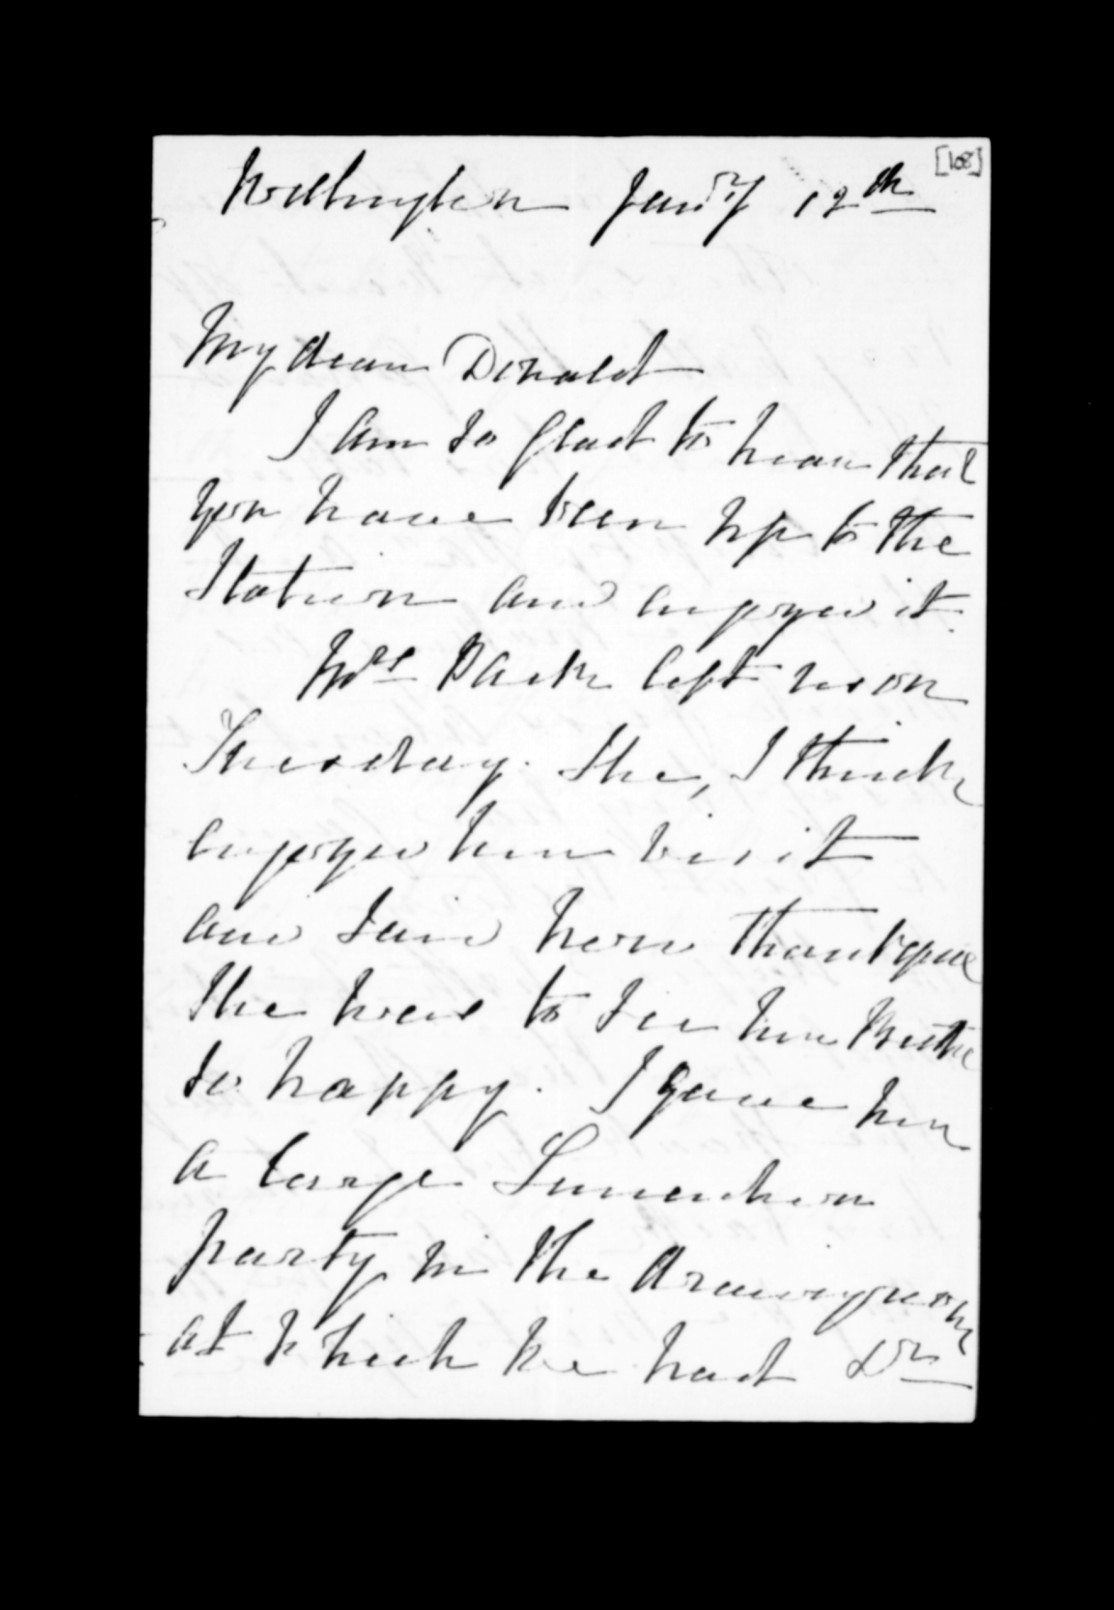 [108]
Wellington Janry 12th
My dear Donald
I am so glad to hear that
you have been up to the
Station and enjoyed it.
Mrs left us on
Tuesday. She, I think
enjoyed her visit
and said how thankful
she was to see her
so happy. I gave her
a large Luncheon
party in the drawingroom
at which we had Dr